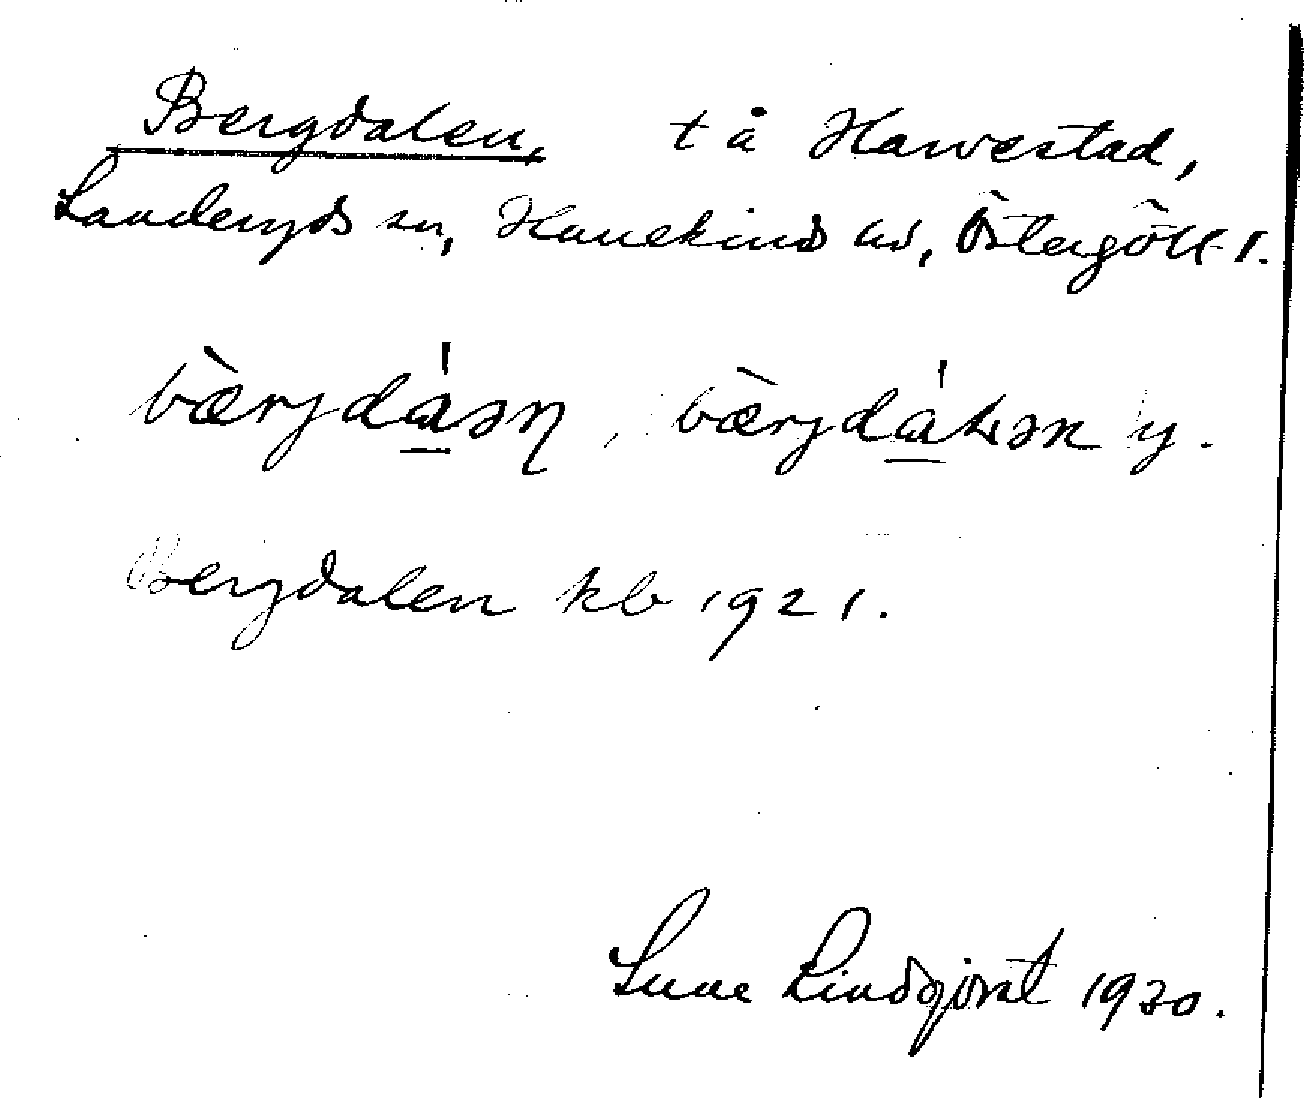 Bergdalen, t å Harvestad,
Landeryds sn, Hanekinds hd, Östergötl l.
bæ̀rjdá̱ən, bæ̀rjdá̱ɫən y.
Bergdalen kb 1921.
Sune Lindqvist 1930.